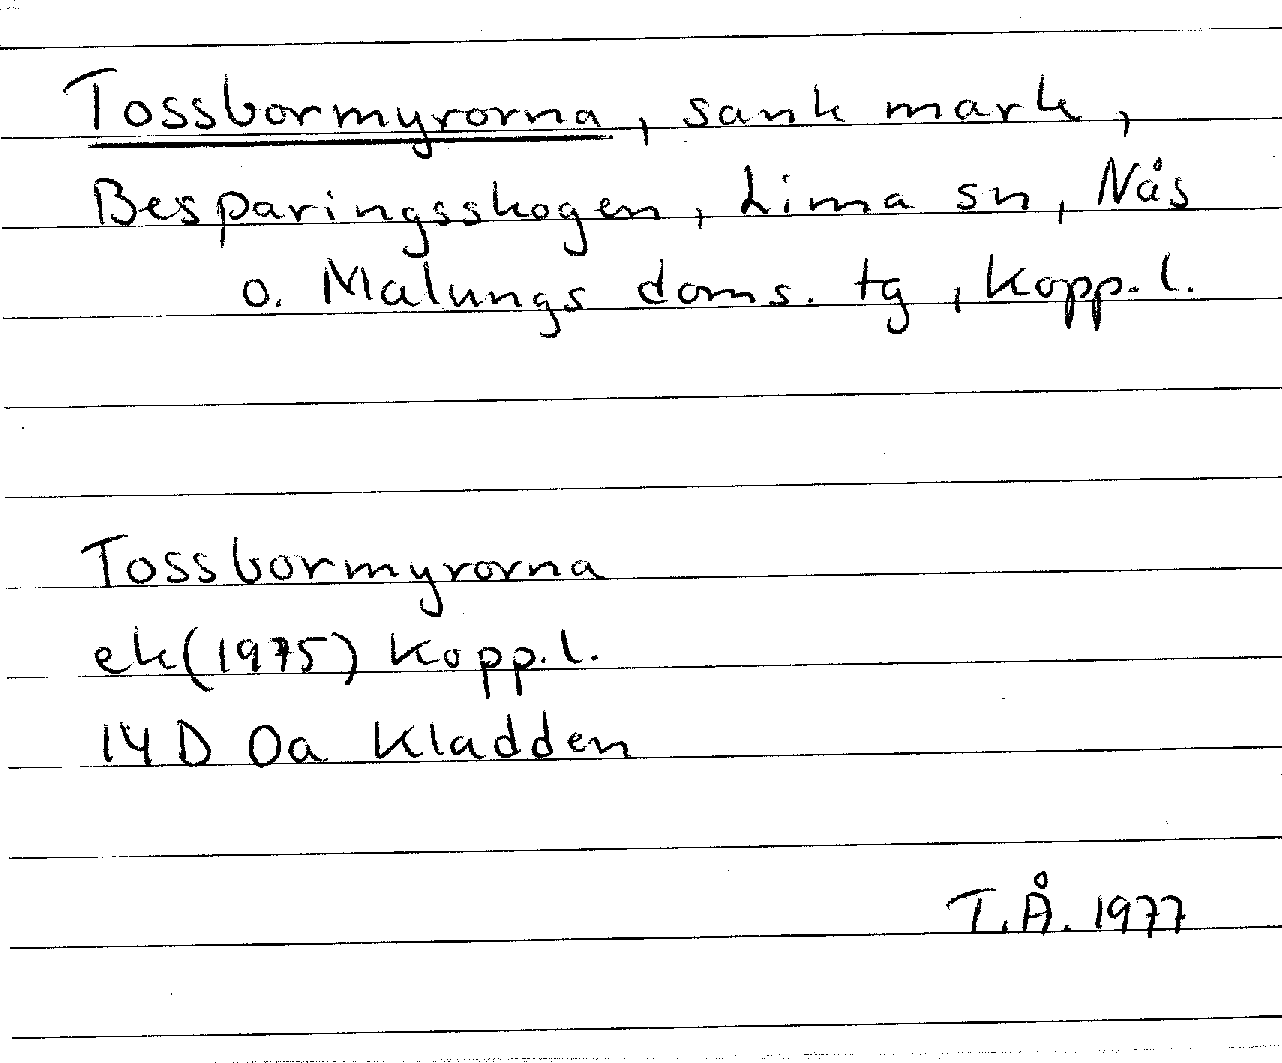 Tossbormyrorna, sank mark,
Besparingsskogen, Lima sn, Nås
o. Malungs doms. tg, Kopp. l.
Tossbormyrorna
ek (1975) Kopp. l.
14 D 0a Kladden
T.Å. 1977